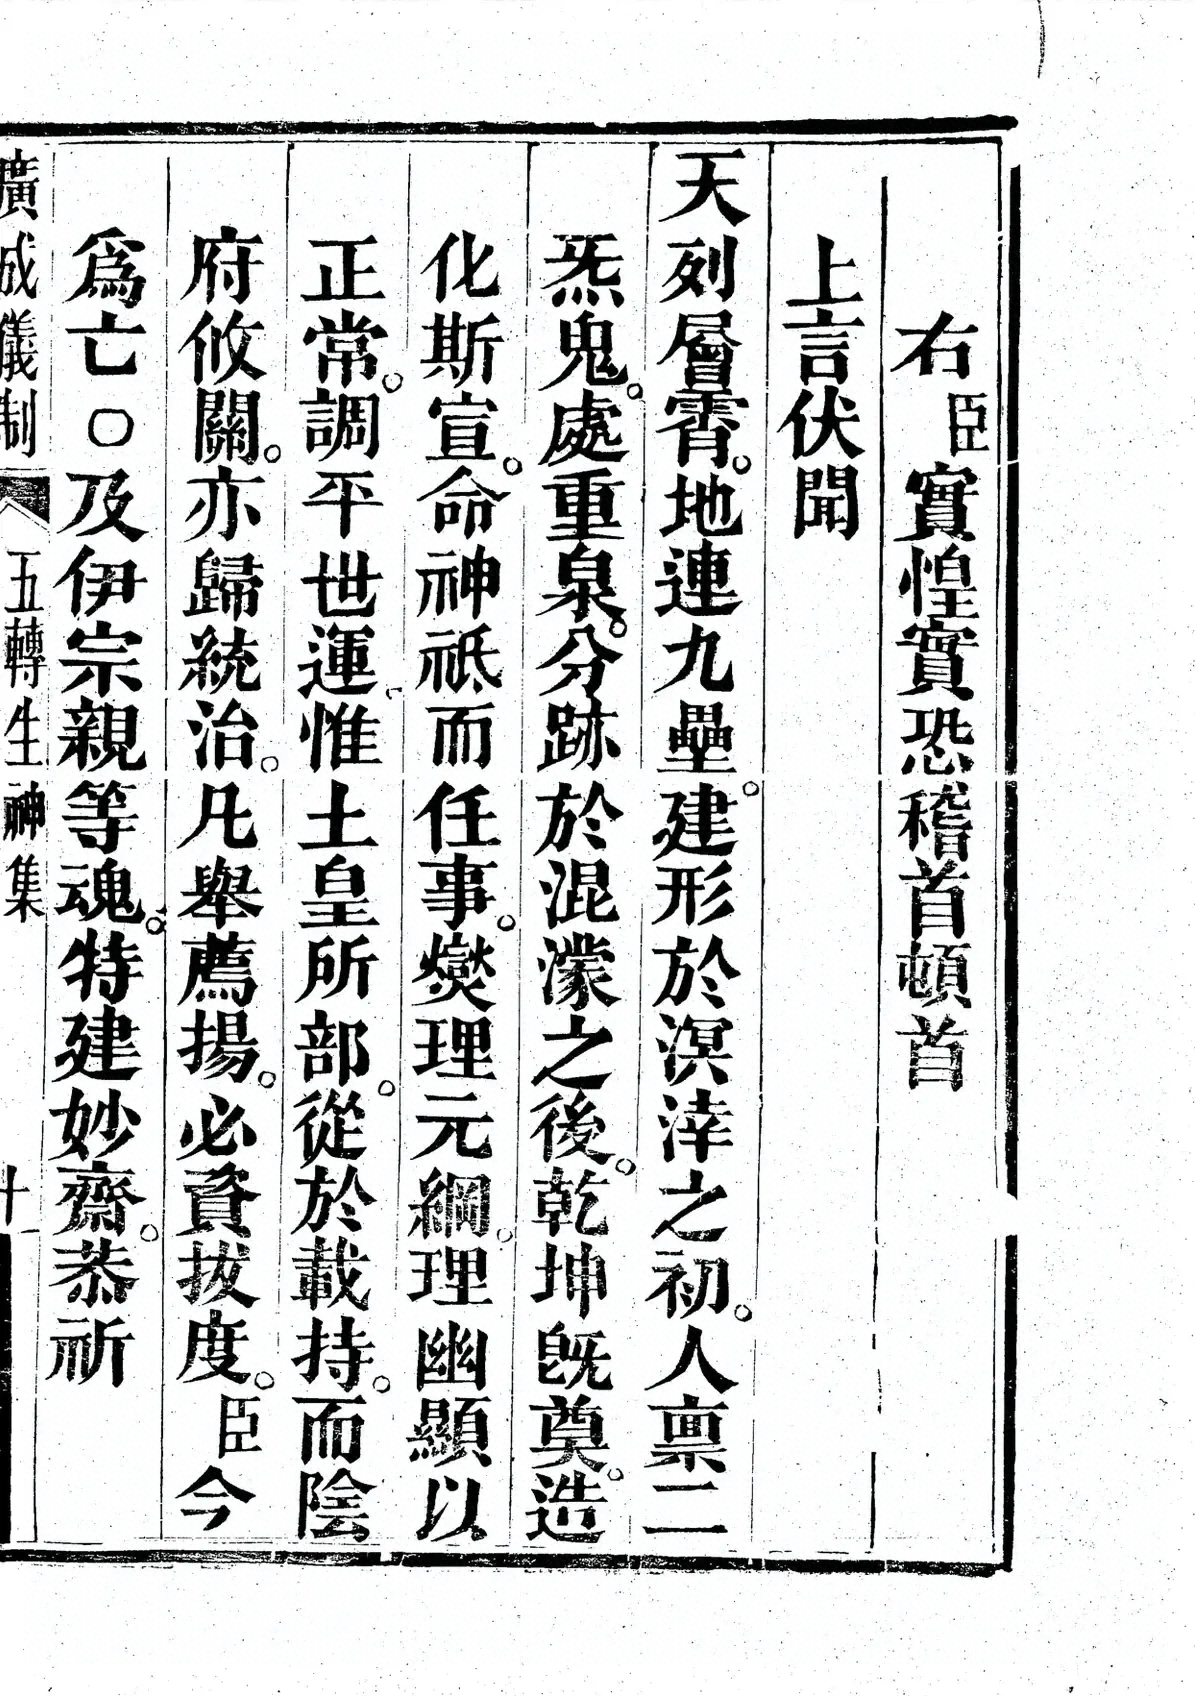 右臣實惶實恐稽首頓首
上言伏聞
天列層霄。地連九壘。建形於溟涬之初。人禀二
炁鬼。處重泉。分跡於混濛之後。乾坤旣奠。造
化斯宣。命神祇而任事。爕理元綱。理幽顯以
正常。調平世運。惟土皇所部。從於載持。而陰
府攸關。亦歸統治。凡舉薦揚。必資拔度。臣今
爲亡○及伊宗親等魂。特建妙齋。恭祈
廣成儀制 五轉生神集 十一